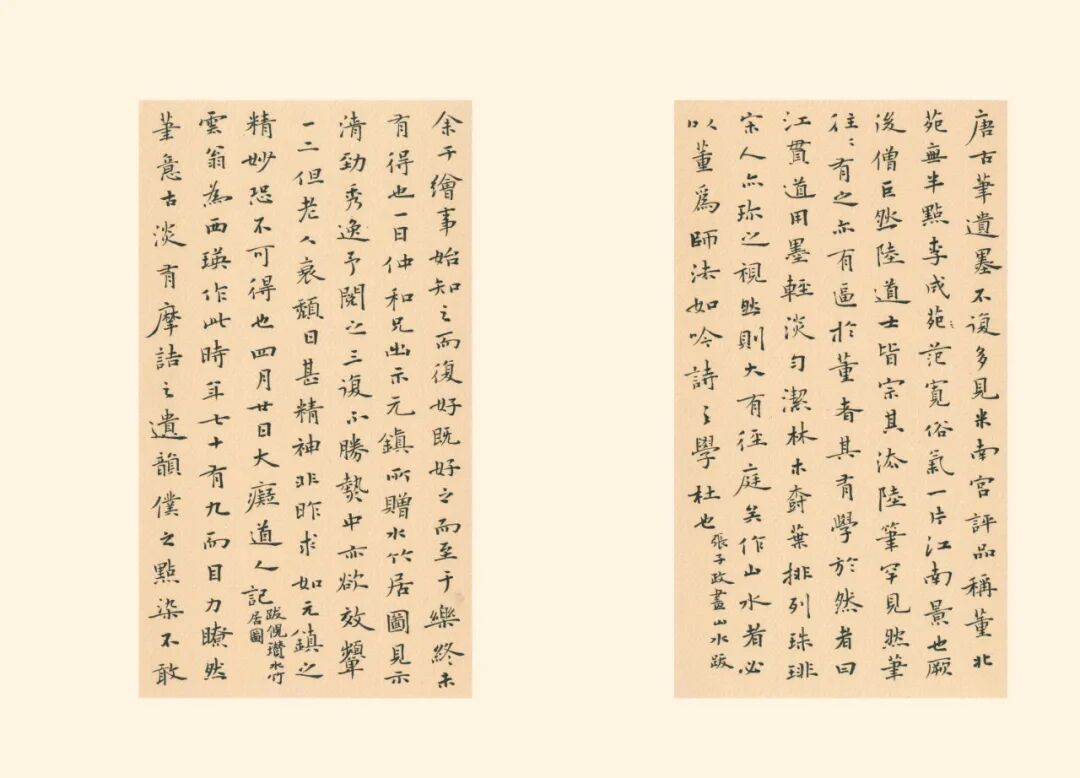 唐古筆遺墨不復多見米南宮評品稱董北
苑無半點李成苑〻范寬俗氣一片江南景也厥
後僧巨然陸道士皆宗其法陸筆罕見然筆
往〻有之亦有逼於董者其有學於然者曰
江貫道用墨輕淡勻潔林木葉排列珠琲
宋人亦珎之視然則大有徑庭矣作山水者必
以董爲師法如吟詩之學杜也
張子政畫山水跋
余于繪事始知之而復好既好之而至于樂終未
有得也一日仲和兄出示元鎮所贈水竹居圖見示
清勁秀逸予閱之三復不勝中亦欲效顰
一二但老人衰頹日甚精神非昨求如元鎮之
精妙恐不可得也四月廿日大癡道人記
跋倪瓚水竹
居圖
雲翁為西瑛作此時年七十有九而目力瞭然
筆意古淡有摩詰之遺韻僕之點染不敢